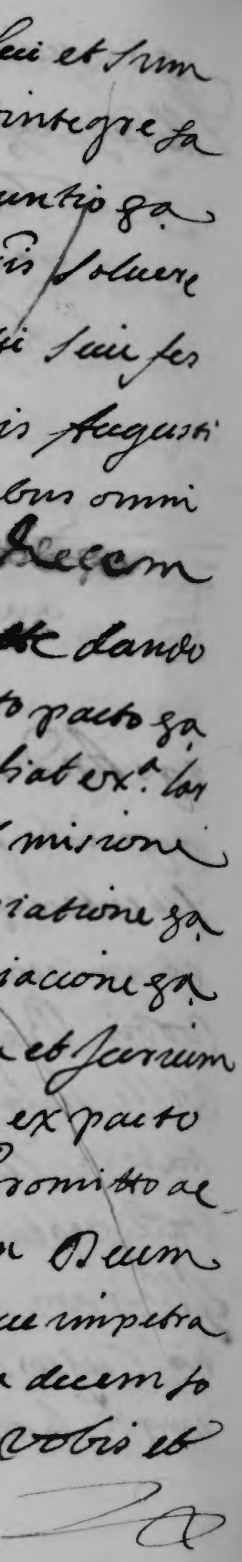 et sum
integre sa
untio ga
is soluere
sui fes
is Augusti
bus omni
decem
dando
to pacto ga
liat exª. lar
misione
iatione ga
iacione ga
et Jurium
ex pacto
Promitto ac
Deum
ue impetra
decem so
vobis et